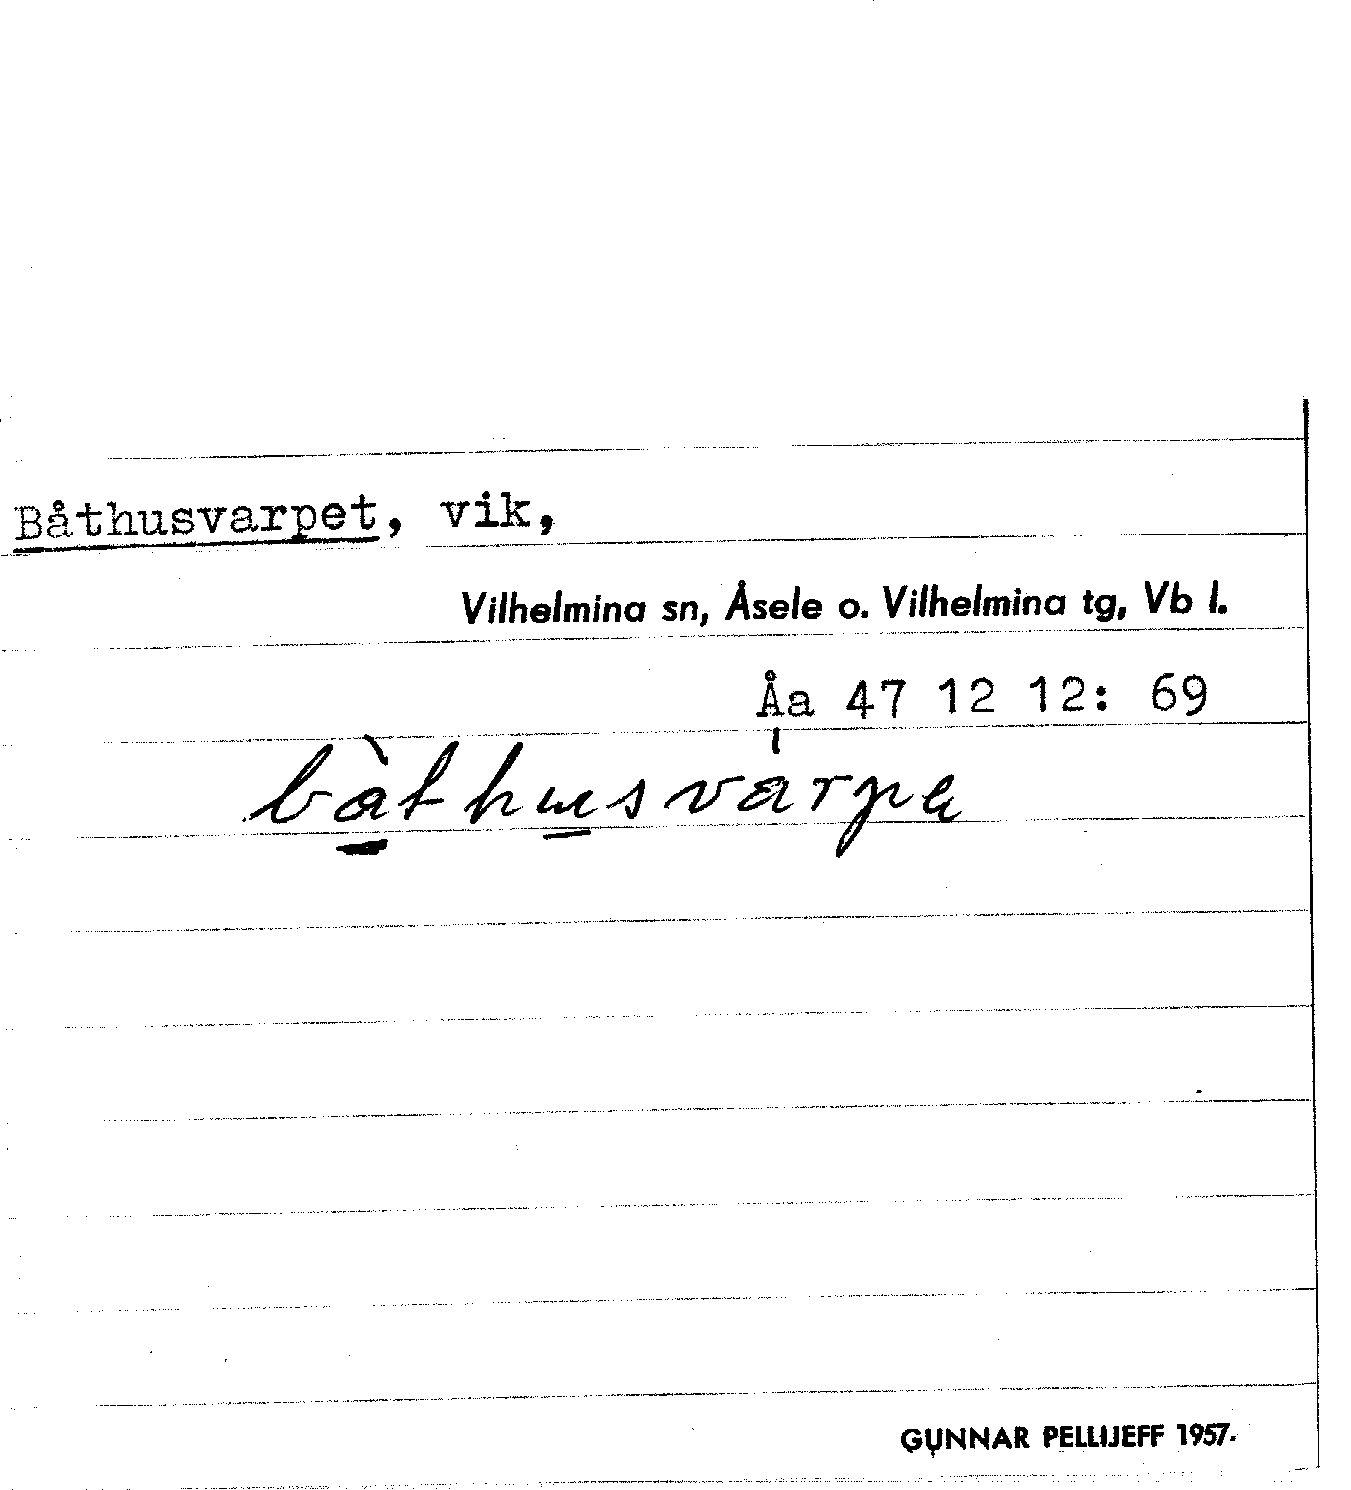 Båthusvarpet, vik,
Vilhelmina sn, Åsele o. Vilhelmina tg, Vb l.
Åa 47 12 12: 69
bàthusvarpe
GUNNAR PELLIJEFF 1957.